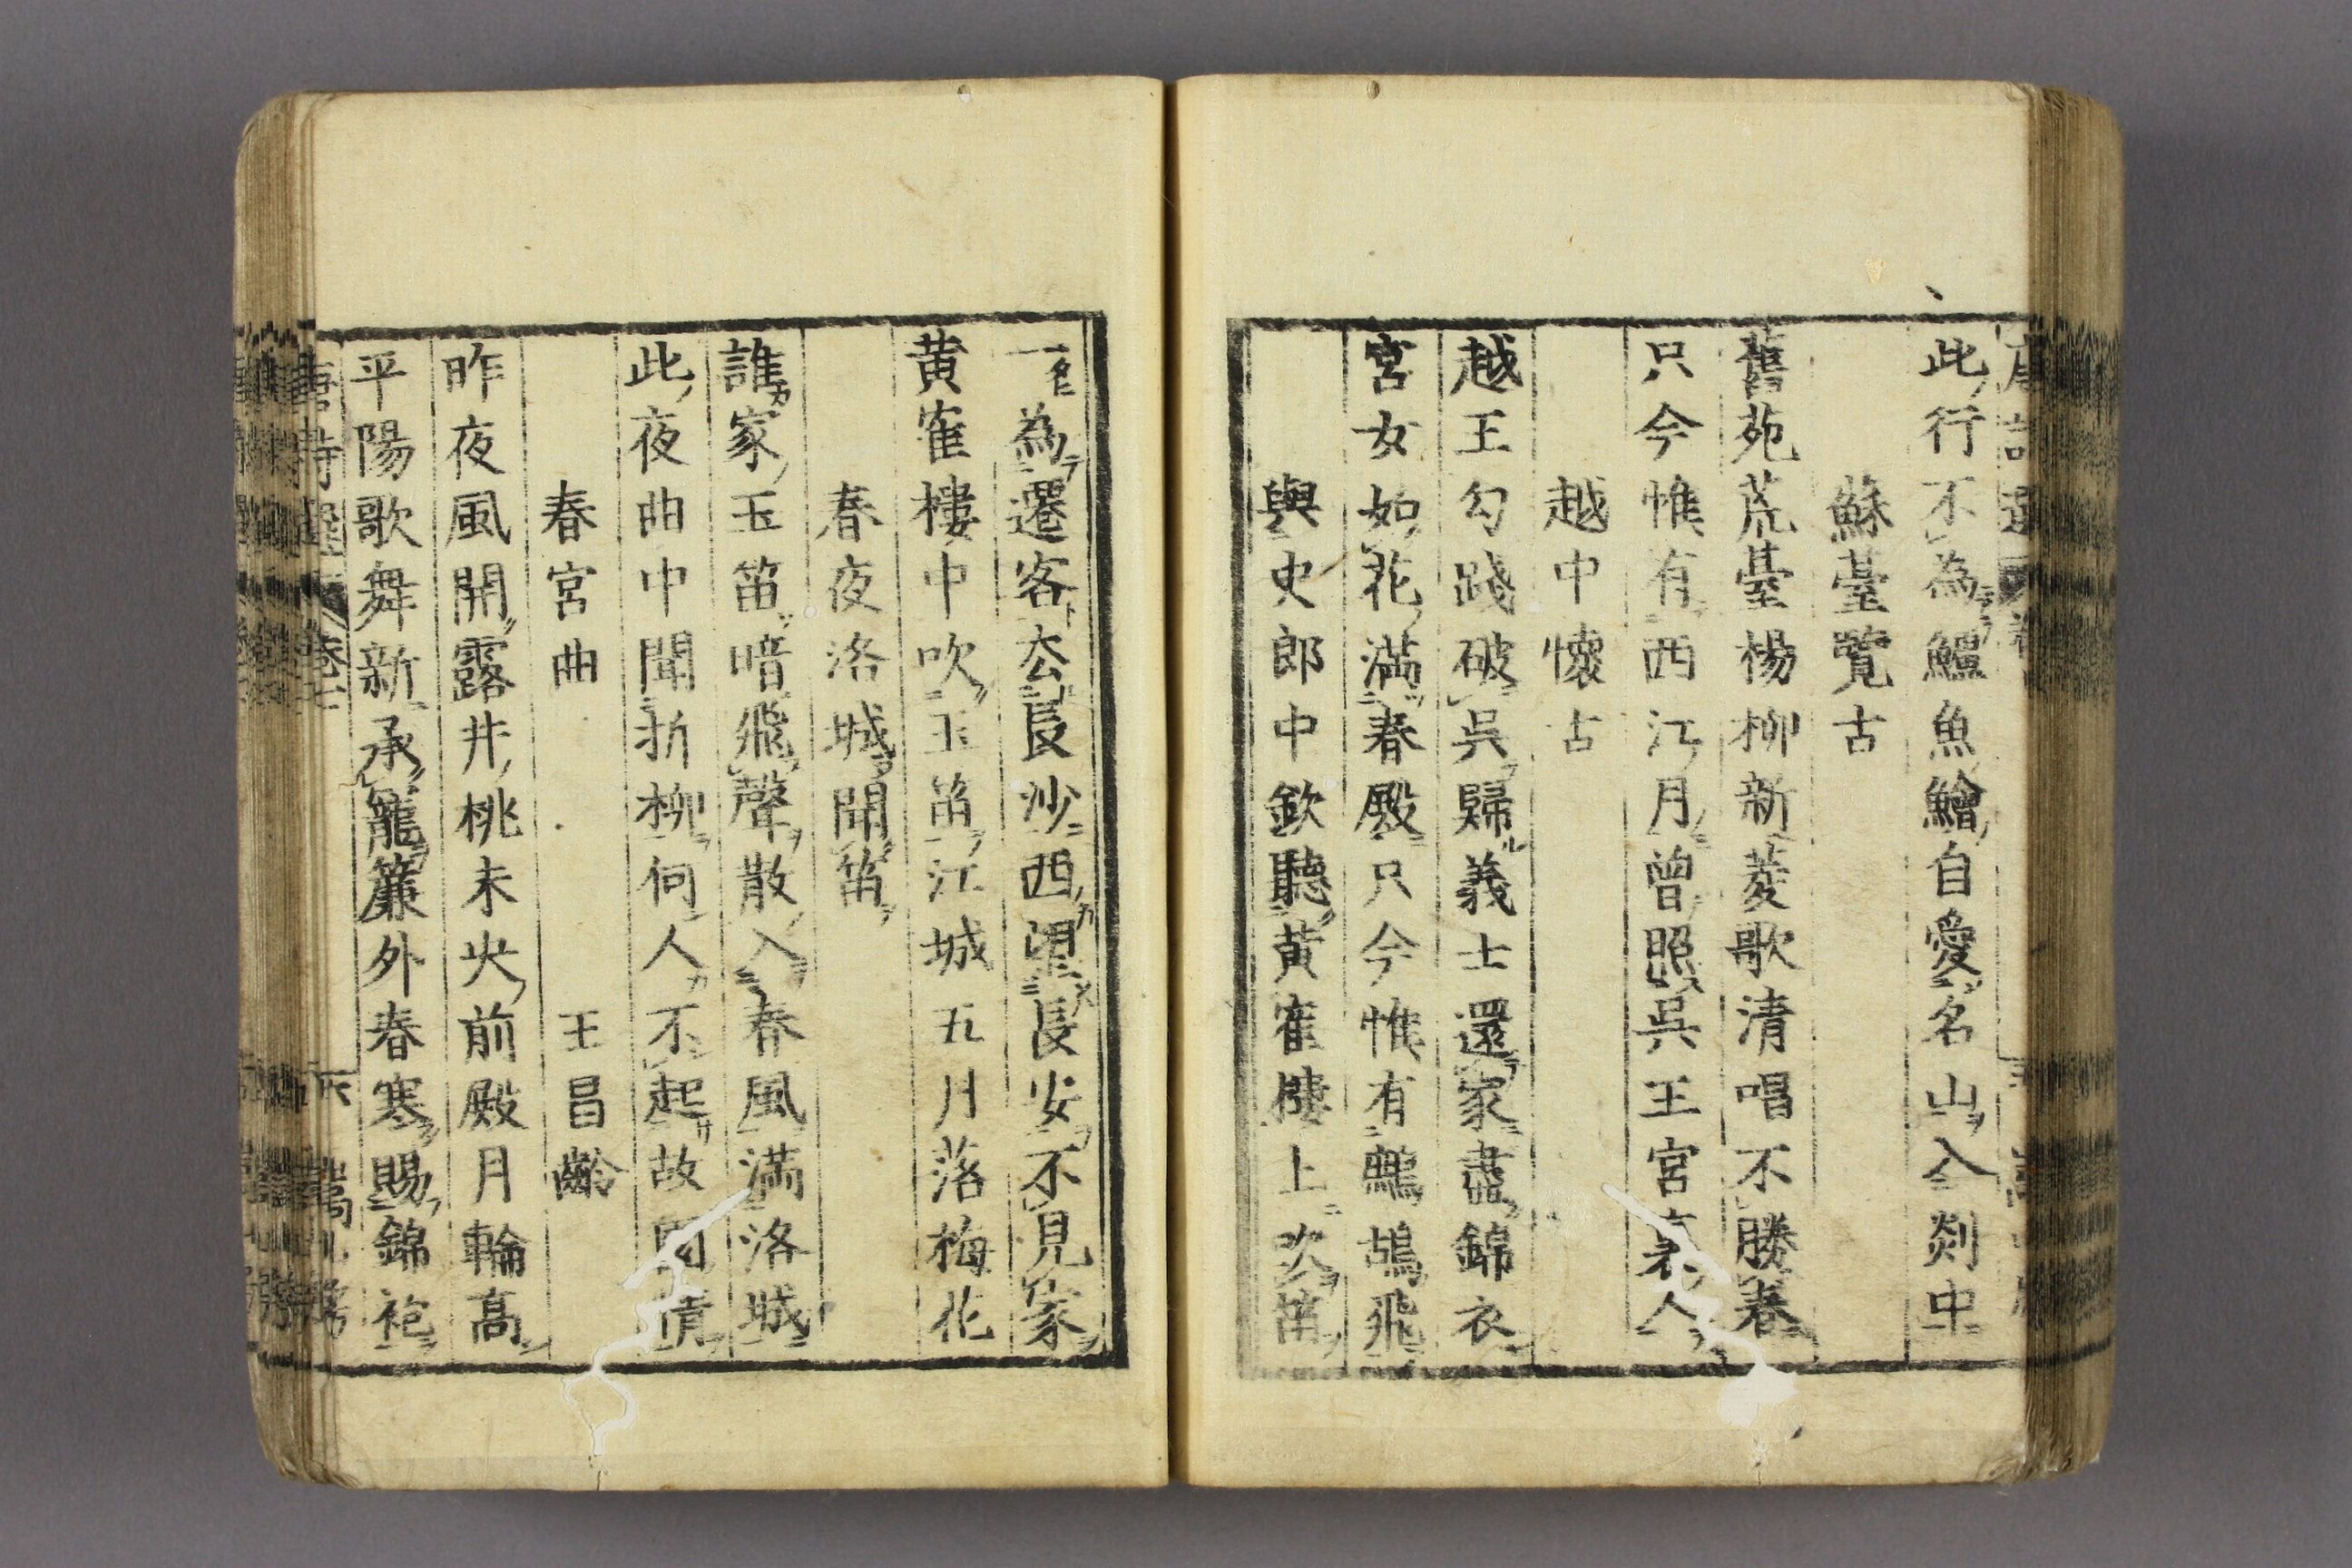 此行不為鱸魚鱠自愛名山入剡中
蘇臺覽古
舊苑荒臺楊柳新菱歌清唱不勝春
只今惟有西江月曾照吳王宮裏人
越中懷古
越王勾踐破吳歸義士還家盡錦衣
宮女如花滿春殿只今惟有鷓鴣飛
與史郎中欽聽黃寉樓上吹笛
一為遷客去長沙西望長安不見家
黃寉樓中吹玉笛江城五月落梅花
春夜洛城聞笛
誰家玉笛暗飛聲散入春風滿洛城
此夜曲中聞折柳何人不起故園情
春宮曲 王昌齡
昨夜風開露井桃未央前殿月輪高
平陽歌舞新承寵簾外春寒賜錦袍
唐詩選 卷七 六